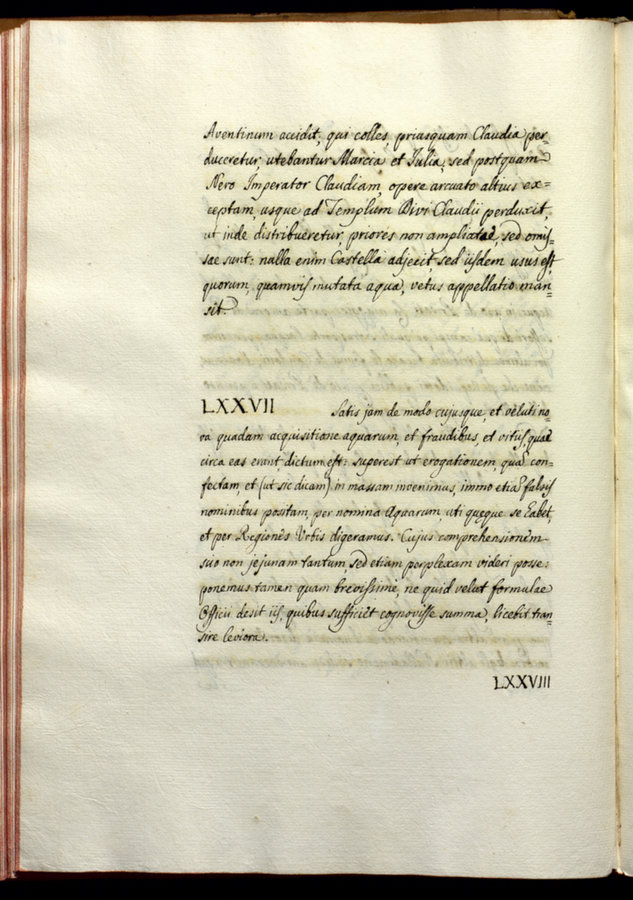 Aventinum accidit, qui colles, priusquam Claudia per-
duceretur, utebantur Marcia et Julia, sed postquam
Nero Imperator Claudiam, opere arcuato altius ex=
ceptam, usque ad Templum Divi Claudii perduxit,
ut inde distribueretur, priores non ampliatae, sed omis=
sae sunt: nulla enim Castella adjecit, sed iisdem usus est,
quorum, quamvis mutata aqua, vetus appellatio man=
sit.
LXXVII Satis jam de modo cujusque, et veluti no
va quadam acquisitione aquarum, et fraudibus, et vitiis, quae
circa eas erant dictum est: superest ut erogationem quā con=
fectam et (ut sic dicam) in massam invenimus, immo etiā falsis
nominibus positam, per nomina Aquarum, uti quęque se habet,
et per Regiones Urbis digeramus. Cujus comprehensionem
scio non jejunam tantum, sed etiam perplexam videri posse:
ponemus tamen quam brevissime, ne quid velut formulae
Officii desit iis, quibus sufficiet cognovisse summa, licebit tran=
sire leviora.
LXXVIII